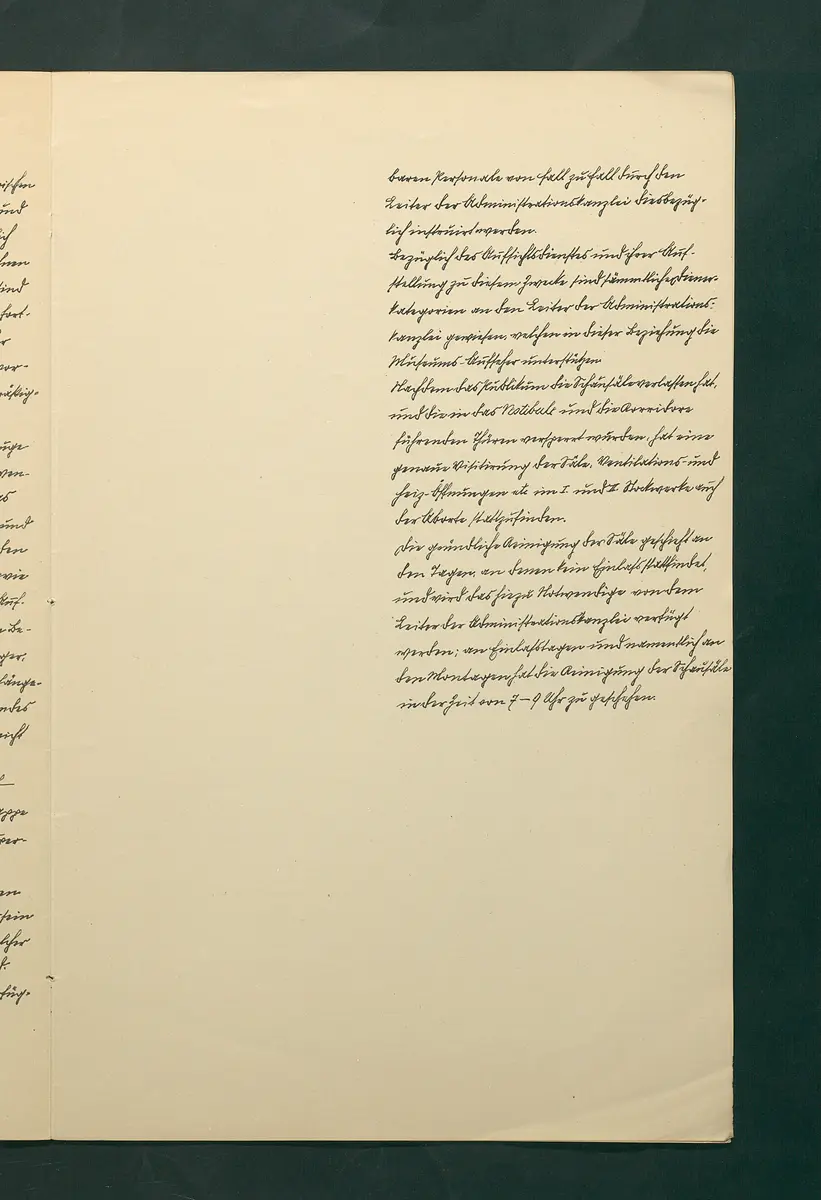 ischen
und
lich
hnen
sind
fort-
r
vor-
räftig-
züge
wen-
s
und
den
wie
Auf-
Be-
ger,
länge-
endes
nicht
appe
ver-
en
sein
lcher
füg-
baren Personale von Fall zu Fall durch den
Leiter der Administrationskanzlei diesbezüg-
lich instruirt werden.
Bezüglich des Aufsichtsdienstes und ihrer Auf-
stellung zu diesem Zwecke sind sämmtliche Diener-
kategorien an den Leiter der Administrations-
kanzlei gewiesen, welchen in dieser Beziehung die
Museums-Aufseher unterstützen
Nachdem das Publikum die Schausäle verlassen hat,
und die in das Vestibule und die Corridore
führenden Thüren versperrt wurden, hat eine
genaue Visitirung der Säle, Ventilations- und
Heiz-Öffnungen etc im I. und II Stockwerke auch
der Aborte stattzufinden.
Die gründliche Reinigung der Säle geschieht an
den Tagen, an denen kein Einlass stattfindet,
und wird das hiezu Notwendige von dem
Leiter der Administrationskanzlei verfügt
werden; an Einlasstagen und namentlich an
den Montagen hat die Reinigung der Schausäle
in der Zeit von 7–9 Uhr zu geschehen.